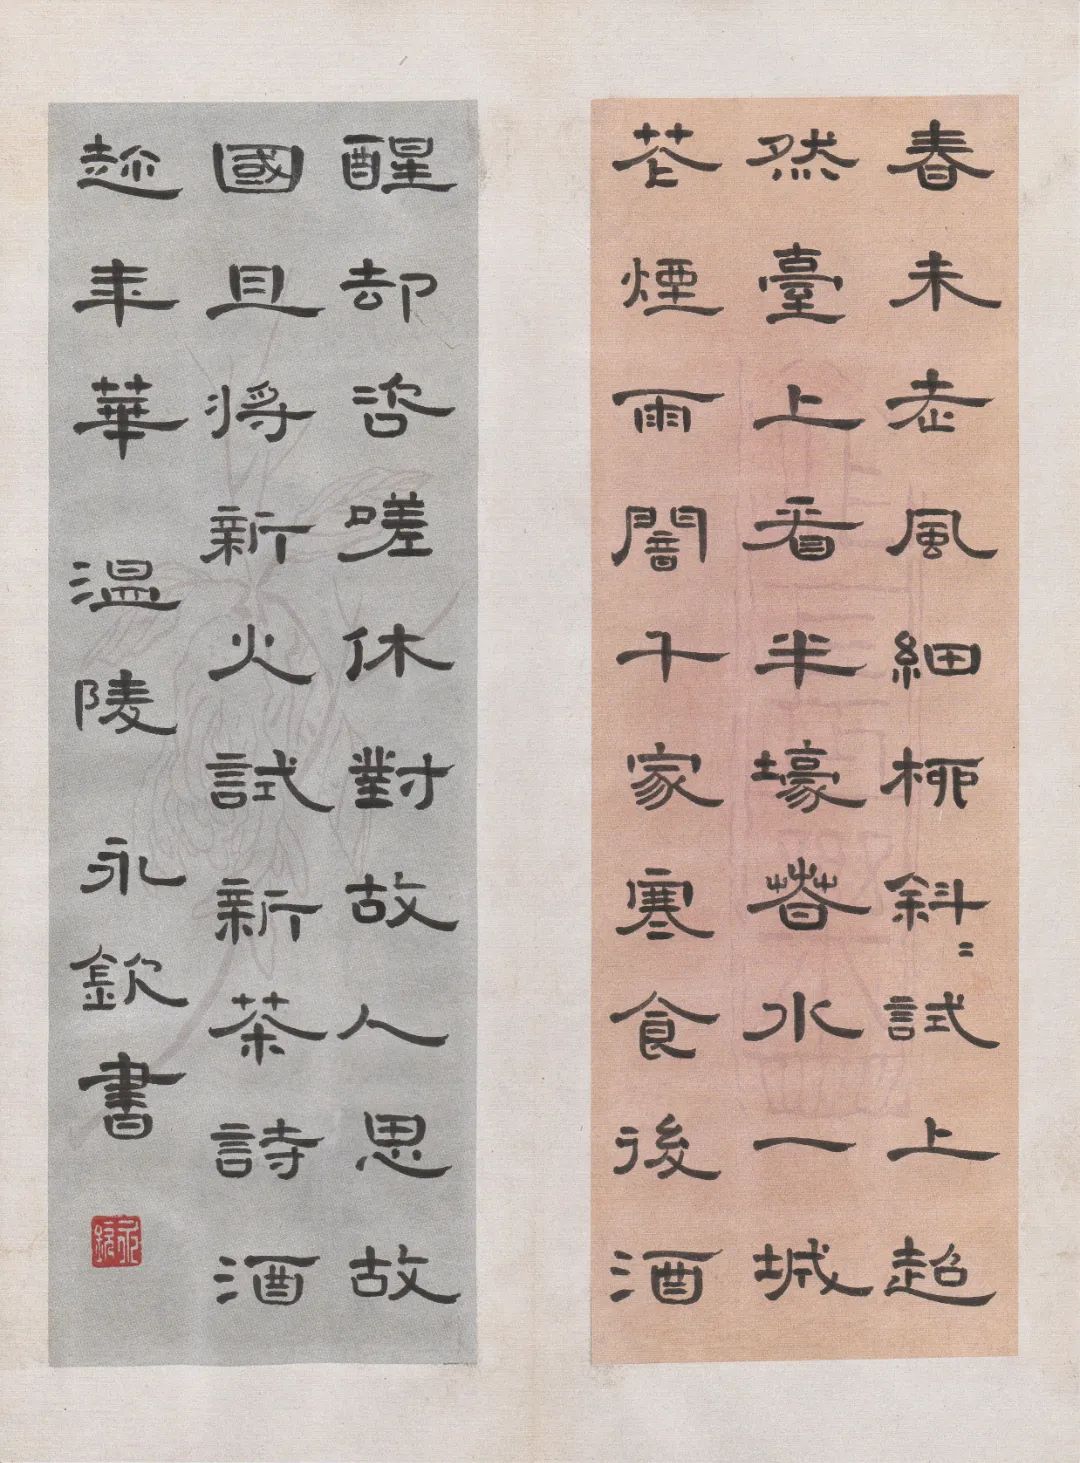 春未老風細柳斜〻試上超
然臺上看半壕春水一城
花煙雨闇千家寒食後酒
醒却咨嗟休對故人思故
國且将新火試新茶詩酒
趂年華 温陵永欽書
永欽